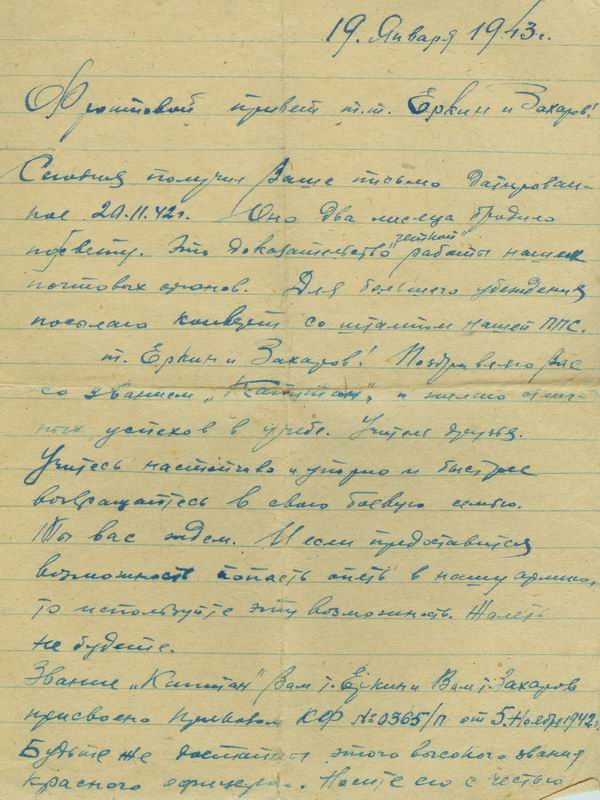 19. Января 1943г.
Фронтовой привет т.т. Еркин и Захаров!
Сегодня получил Ваше письмо датирован-
ное 20.11.42г. Оно два месяца бродило
по свету. Это доказательство "четкой" работы наших
почтовых органов. Для большего убеждения
посылаю конверт со штампом нашей ППС.
т. Еркин и Захаров! Поздравляю Вас
со званием „Капитан", и желаю отлич-
ных успехов в учебе. Учитесь друзья.
Учитесь настойчиво и упорно и быстрее
возвращайтесь в свою боевую семью.
Мы вас ждем. И если предоставится
возможность попасть опять в нашу армию,
то используйте эту возможность. Жалеть
не будете.
Звание „Капитан" Вам т. Еркин и Вам т. Захаров
присвоено Приказом КФ №0365/п от 5.Ноября1942г.
Будьте же достойны этого высокого звания
Красного офицера. Носите его с честью